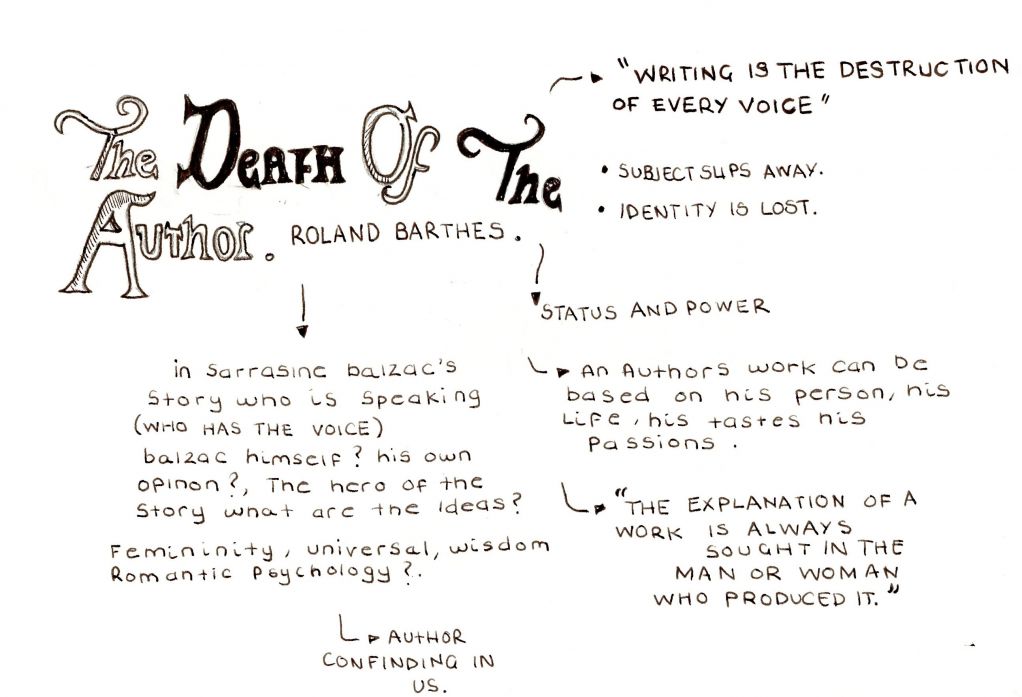 The Death Of The
Author. ROLAND BARTHES.
"WRITING IS THE DESTRUCTION
OF EVERY VOICE"
• SUBJECT SLIPS AWAY.
• IDENTITY IS LOST.
in Sarrasine balzac's
Story who is speaking
(WHO HAS THE VOICE)
balzac himself? his own
opinon?, The hero of the
Story what are the Ideas?
Femininity, universal, wisdom
Romantic Psychology?.
AUTHOR
CONFINDING IN
US.
STATUS AND POWER
An Authors work can be
based on his person, his
Life, his tastes his
Passions.
"THE EXPLANATION OF A
WORK IS ALWAYS
SOUGHT IN THE
MAN OR WOMAN
WHO PRODUCED IT."